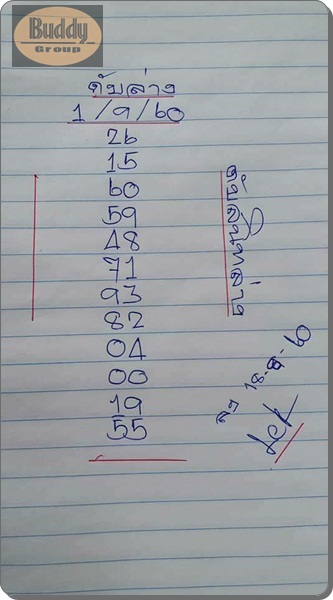 Buddy
Group
ดับล่าง
1/9/60
26
15
60
59
48
71
93
82
04
00
19
55
18-8-60